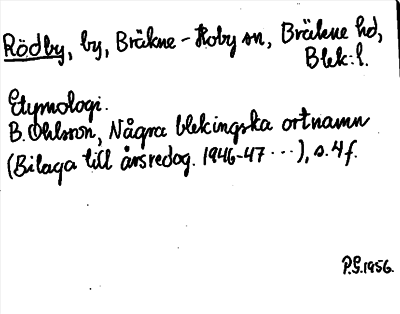 Rödby, by, Bräkne-Hoby sn, Bräkne hd,
Blek: l.
Etymologi.
B. Ohlsson, Några blekingska ortnamn
(Bilaga till årsredog. 1946-47 ...), s. 4 f.
P.G. 1956.